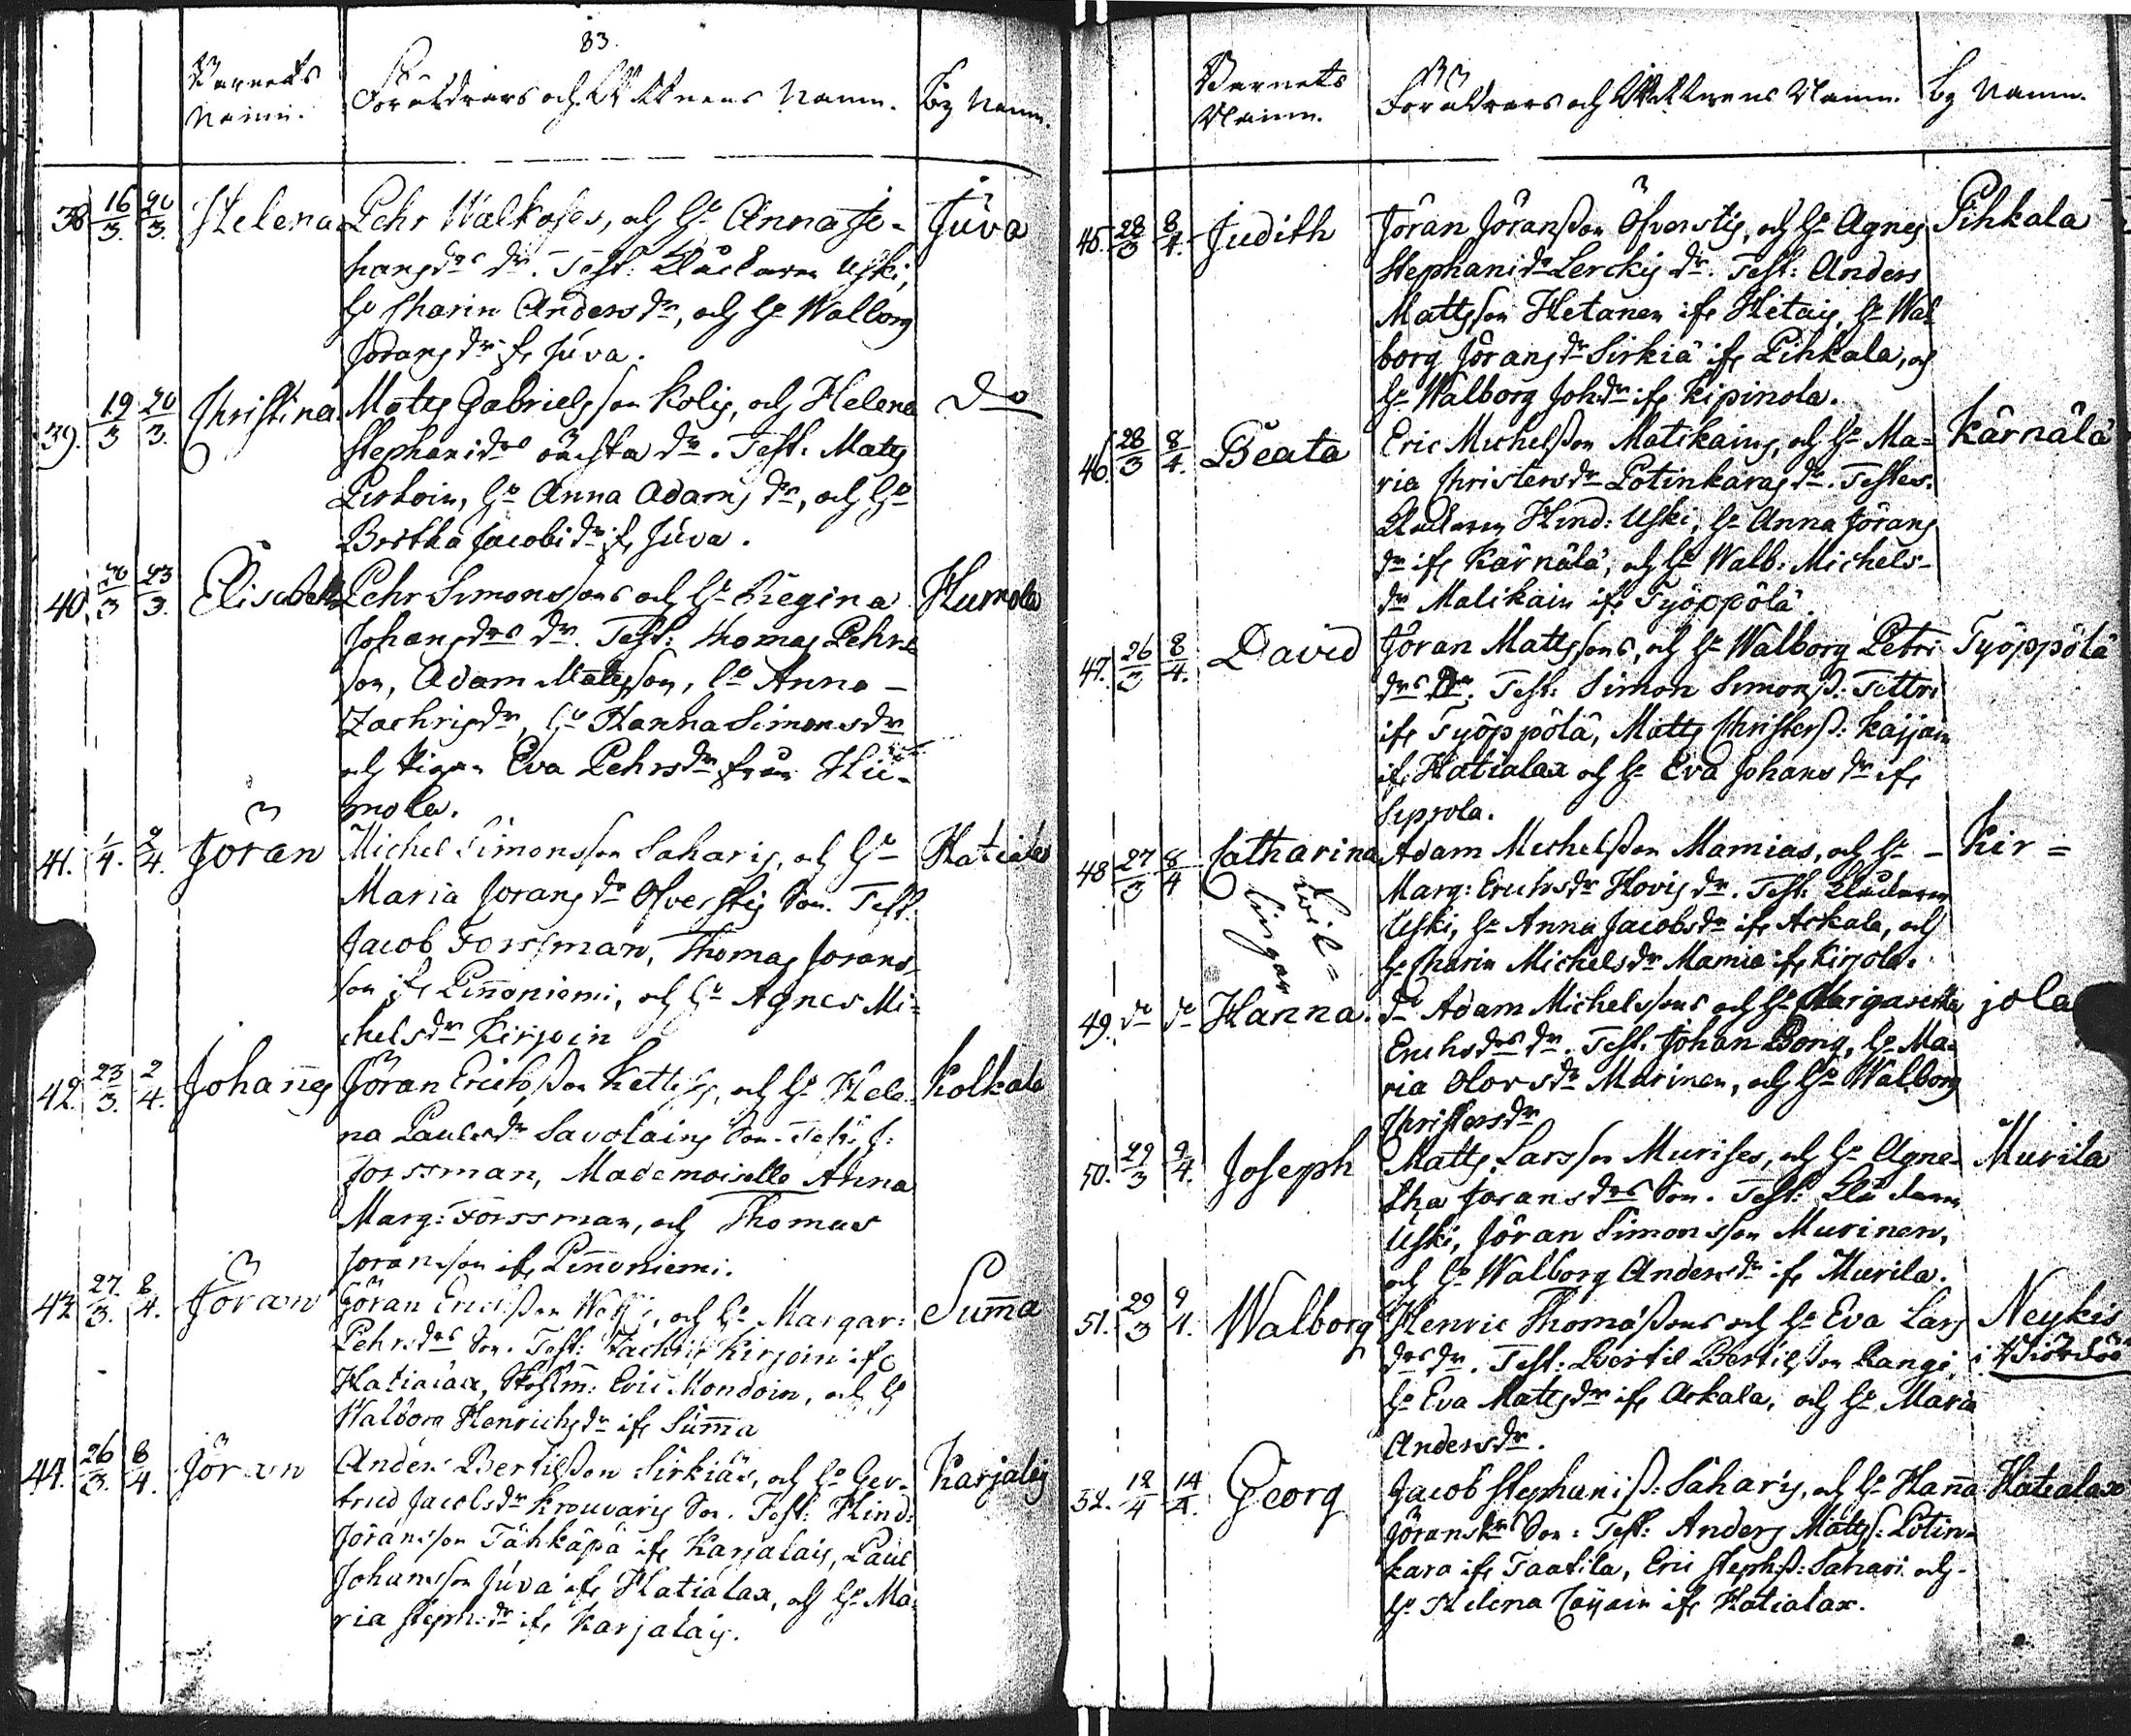 83.
Barnets Namn. Föräldrars och Wittnens Namn. By Namn.
38 16/3. 20/3. Helena Pehr Walkoses, och H:o Anna Jo- Juva
hans d:rs d:r. Test: Klåckaren Uski,
H:o Charin Anders d:r, och H:o Walborg
Jörans d:r fr. Juva.
39. 19/3 20/3. Christina Matts Gabrielsson Kolis, och Helena D:o
Stephani d:rs d:r. Test. Matts
H:o Anna Adams d:r, och H:o
Bertha Jacobi d:r fr. Juva.
40. 20/3 23/3. Elisabeth Pehr Simonssons och H:o Regina Humola
Johans d:rs d:r. Test: Thomas Pehrs-
son, Adam Mattsson, H:o Anna
Zachris d:r, H:o Hanna Simons d:r
och Pigan Eva Pehrs d:r från Hu-
mola.
41. 1/4. 2/4. Jöran Michel Simonsson Saharis, och H:o Hatiala
Maria Jörans d:r Öfverstis Son. Test.
Jacob Forssman, Thomas Jörans-
son ifr. Pin̄oniemi, och H:o Agnes Mi-
chels d:r Kirjoin
42. 23/3. 2/4. Johan̄es Jöran Erichsson Kettis, och H:o Hele- Kolkala
na Pauls d:r Savolains Son. Test: J:
Forssman, Mademoiselle Anna
Marg: Forssman, och Thomas
Joransson ifr. Pin̄oniemi.
43. 27/3. 8/4. Jöran Jöran Erichsson och H:o Margar: Sum̄a
Pehrs d:rs Son. Test: Zachris Kirjoin ifr.
Hatialax, Eric Mondoin, och H:o
Walborg Henrichs d:r ifr Sum̄a
44. 26/3. 8/4. Jöran Anders Bertilsson Sirkiäs, och H:o Ger- Karjalis
trud Jacobs d:r Krouvaris Son. Test: Hind:
Jöransson Tähkäpä ifr Karjalais, Paul
Johansson Juva ifr Hatialax, och H:o Ma-
ria Steph: d:r ifr. Karjalais.
Barnets Namn. Föräldrars och Wittnens Namn. By Namn.
45. 28/3 8/4. Judith Jöran Jöransson Öfverstis, och H:o Agnes Pihkala
Stephani d:r Lerckis d:r. Test: Anders
Mattsson Hetanen ifr Hetais, H:o Wal-
borg Jörans d:r Sirkiä ifr Pihkala, och
H:o Walborg Joh: d:r ifr Kipinola.
46. 28/3 8/4. Beata Eric Michelsson Matikains, och H:o Ma- Kärnälä
ria Christers d:r Potinkaras d:r. Testes.
Klåckaren Hind: Uski, H:o Anna Jörans
d:r ifr Kärnälä, och H:o Walb: Michels-
d:r Matikain ifr Työppölä.
47. 26/3 8/4. David Jöran Mattssons, och H:o Walborg Petri Työppölä
d:rs d:r. Test: Simon Simonss: Tettri
ifr Työppölä, Matts Christerss: Kaijain
ifr Hatialax och H:o Eva Johans d:r ifr
Seppola.
48 27/3 8/4 Catharina Adam Michelsson Mamias, och H:o - Kir=
Marg: Erichs d:r Hovis d:r. Test: Klåckaren
Uski, H:o Anna Jacobs d:r ifr Askala, och
H:o Charin Michels d:r Mamia ifr Kirjola.
Twil=
lingar
49. d:o d:o Hanna. d:o Adam Michelssons och H:o Margaretha jola
Erichs d:rs d:r. Test: Johan Borg, H:o Ma-
ria Olofs d:r Murinen, och H:o Walborg
Christers d:r
50. 29/3 9/4. Joseph Matts Larsson Murises, och H:o Agne- Murila
tha Jorans d:rs Son. Test: Klåckaren
Uski, Jöran Simonsson Murinen,
och H:o Walborg Anders d:r ifr Murila.
51. 29/3 9/4. Walborg Henric Thomassons och H:o Eva Lars Neykis
d:rs d:r. Test: Bertil Bertilsson Rangi, i Biörckö
H:o Eva Matts d:r ifr Askala, och H:o Maria
Anders d:r.
52. 12/4 14/4. Georg Jacob Stephaniss: Saharis, och H:o Han̄a Hatialax
Jörans d:rs Son. Test: Anders Mattss: Potin-
kara ifr Taatila, Eric Stephss: Sahari och
H:o Helena Caijain ifr Hatialax.